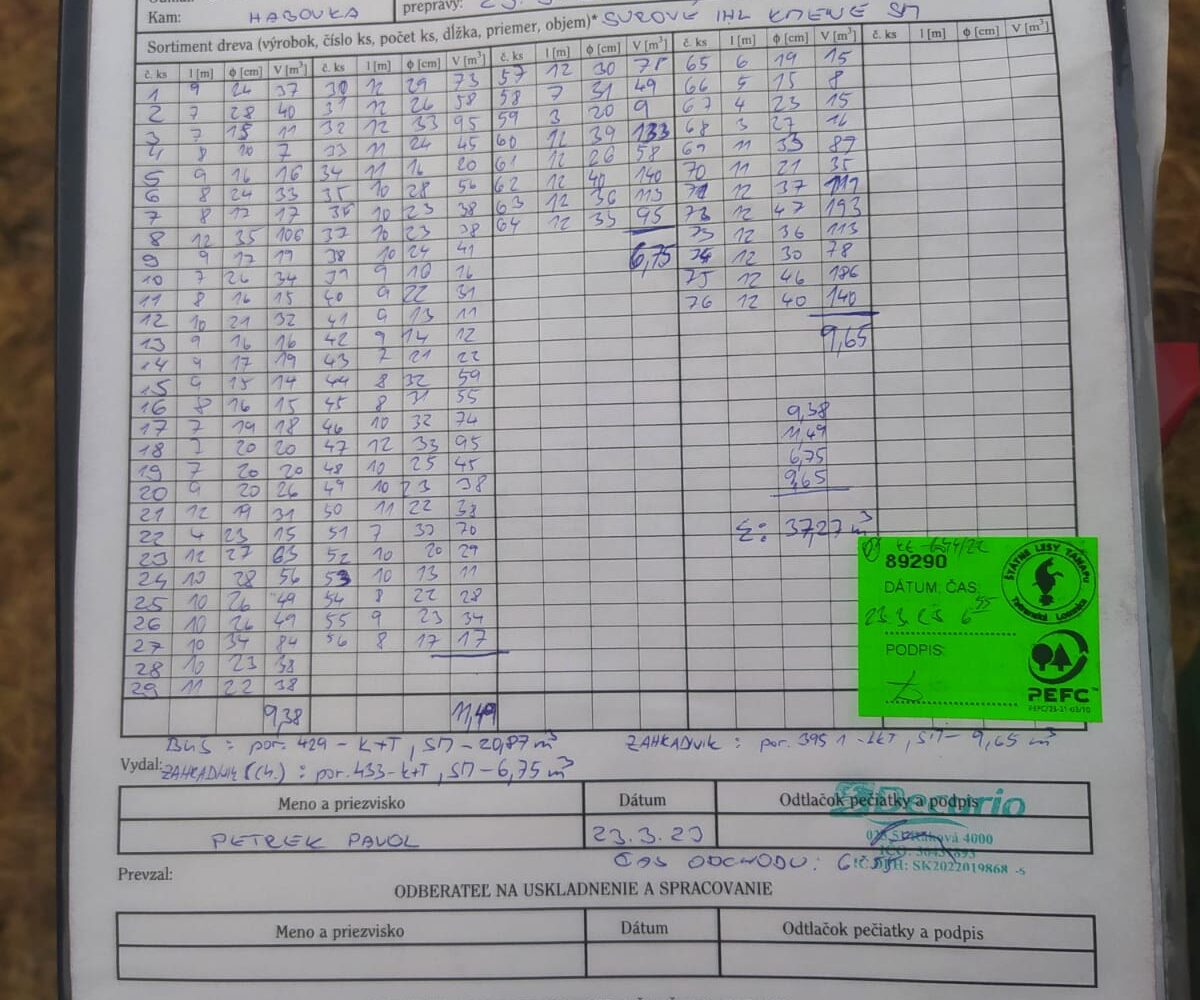 Kam: HABOVKA prepravy: SUROVÉ IHL KMENE SM
Sortiment dreva (výrobok, číslo ks, počet ks, dĺžka, priemer, objem)*
č. ks l [m] ϕ [cm] V [m³] č. ks l [m] ϕ [cm] V [m³] č. ks l [m] ϕ [cm] V [m³] č. ks l [m] ϕ [cm] V [m³] č. ks l [m] ϕ [cm] V [m³]
1 9 24 37 30 12 29 73 57 12 30 78 65 6 19 15
2 7 28 40 31 12 26 58 58 7 31 49 66 5 15 8
3 7 15 11 32 12 33 95 59 3 20 9 67 4 23 15
4 8 10 7 33 11 24 45 60 12 39 133 68 3 27 16
5 9 16 16 34 11 16 20 61 12 26 58 69 11 33 87
6 8 24 33 35 10 28 56 62 12 40 140 70 11 21 35
7 8 17 17 36 10 23 38 63 12 36 113 71 12 37 119
8 12 35 106 37 10 23 38 64 12 33 95 12 47 193
9 9 17 19 38 10 24 41 6,75 73 12 36 113
10 7 26 34 39 9 16 74 12 30 78
11 8 16 15 40 9 22 31 75 12 46 186
12 10 21 32 41 9 13 11 76 12 40 140
13 9 16 16 42 9 14 12 9,65
14 9 17 19 43 7 21 22
15 9 15 14 44 8 32 59
16 8 16 15 45 8 31 55 9,38
17 7 19 18 46 10 32 74 11,49
18 7 20 20 47 12 33 95 6,75
19 7 20 20 48 10 25 45 9,65
20 9 20 26 49 10 23 38
21 12 19 31 50 11 22 38
22 4 23 15 51 7 70 Σ: 37,27 m³
23 12 27 63 52 10 20 29
24 10 28 56 53 10 13 11
25 10 26 49 54 8 22 28
26 10 26 49 55 9 23 34
27 10 34 84 56 8 17 17
28 10 23 38
29 11 22 38
9,38 11,49
89290
DÁTUM, ČAS:
6⁵⁵
PODPIS:
ŠTÁTNE LESY TANAPU
Tatranská Lomnica
PEFC™
BUS: por. 429 - K+T, SM - 20,87 m³ ZAHRADNIK: por. 395 1 - LKT, SM - 9,65 m³
Vydal: ZAHRADNIK (Ch.): por. 433 - K+T, SM - 6,75 m³
Meno a priezvisko Dátum Odtlačok pečiatky a podpis
Decurio
PETREK PAVOL 23.3.23
4000
ČAS ODCHODU:
IČ DPH: SK2022019868
Prevzal:
ODBERATEĽ NA USKLADNENIE A SPRACOVANIE
Meno a priezvisko Dátum Odtlačok pečiatky a podpis